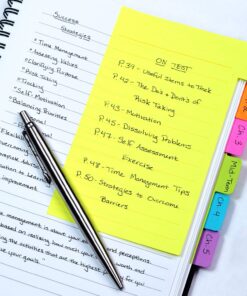 Success
Strategies
*Time Management
*Assessing Values
*Clarifying Purpose
*Risk Taking
*Tracking
*Self-Motivation
*Balancing Priorities
ON TEST
P.39 - Useful Items to Pack
P.42 - The Do's & Dont's of
Risk Taking
P.43 - Motivation
P.45 - Dissolving Problems
P.47 - Self Assessment
Exercise
P.48 - Time Management Tips
P.50 - Strategies to Overcome
Barriers
Mid-Term
Ch. 4
Ch. 5
management is about your
and perceptions.
based on realizing how much your
worth and
the activities that are the highest
for you
your goals."